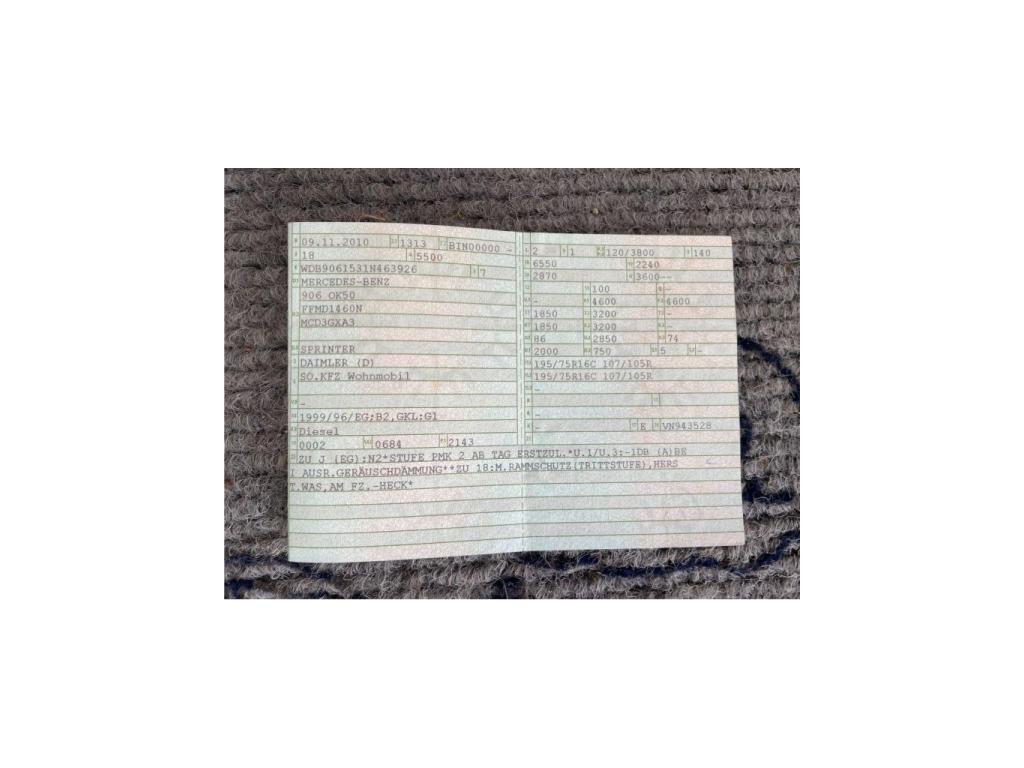 09.11.2010 1313 BIN00000 -
18 5500
WDB9061531N463926 7
MERCEDES-BENZ
906 OK50
FFMD1460N
MCD3GXA3
SPRINTER
DAIMLER (D)
SO.KFZ Wohnmobil
-
1999/96/EG;B2,GKL:G1
Diesel
0002 0684 2143
2 1 120/3800 140
6550 2240
2870 3600--
100 --
- 4600 4600
1850 3200 -
1850 3200 -
86 2850 74
2000 750 5 -
195/75R16C 107/105R
195/75R16C 107/105R
-
-
- E VN943528
ZU J (EG):N2*STUFE PMK 2 AB TAG ERSTZUL.*U.1/U.3:-1DB (A)BE
I AUSR.GERÄUSCHDÄMMUNG**ZU 18:M.RAMMSCHUTZ(TRITTSTUFE),HERS
T.WAS,AM FZ.-HECK*